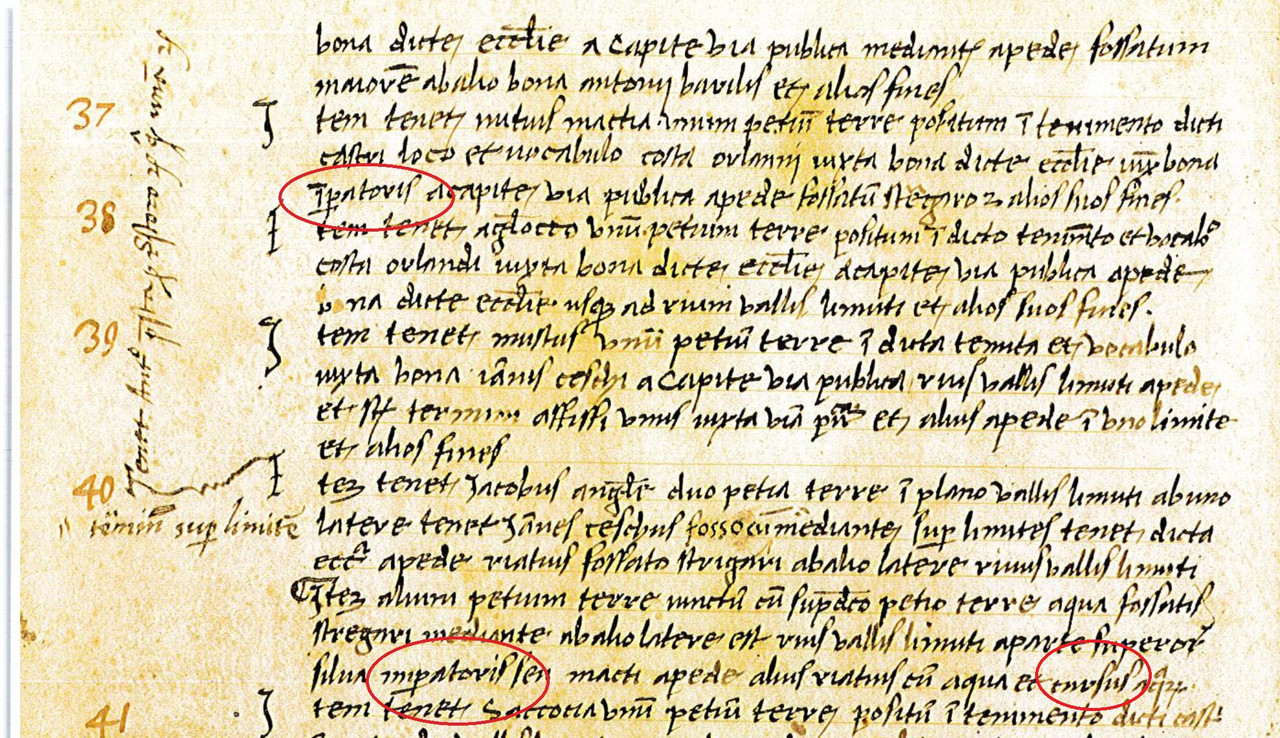 bona dicte ecclie a capite via publica mediante apede fossatum
maiorē abalio bona antonii barilis et alios fines
37
Item tenet mutius mactia unum petiū terre positum ī tenimento dicti
castri loco et vocabulo costa orlanni iuxta bona dicte ecclie iux bona
īpatoris acapite via publica apede fossatū stregaro z alios suos fines.
38
Item tenet unū petium terre positum ī dicto tenimto et vocalo
costa orlandi iuxta bona dicte ecclie acapite via publica apede
bona dicte ecclie usq ad rium vallis limuti et alios suos fines.
39
Item tenet mustus unū petiū terre ī dicta tenuta et vocabulo
iuxta bona ianis ceschi a capite via publica rius vallis limuti apede
et st termini affissi unus iuxta viā et alius apede ī uno limite
et alios fines
40
Itez tenet Jacobus angle duo petia terre ī plano vallis limuti abuno
latere tenet Jānes ceschus mediante sup limites tenet dicta
apede riatius fossato strigari abalio latere rius vallis limuti
Itez alium petium terre iunctū cū supdco petio terre aqua fossatis
stregari mediante abalio latere est rius vallis limuti aparte superor
silva impatoris seu macti apede alius riatius cū aqua et cursus aqz.
41
Item tenet Saccocia unū petiū terre positū ī tenimento dicti cast
Tenet Ant
terminū sup limitē